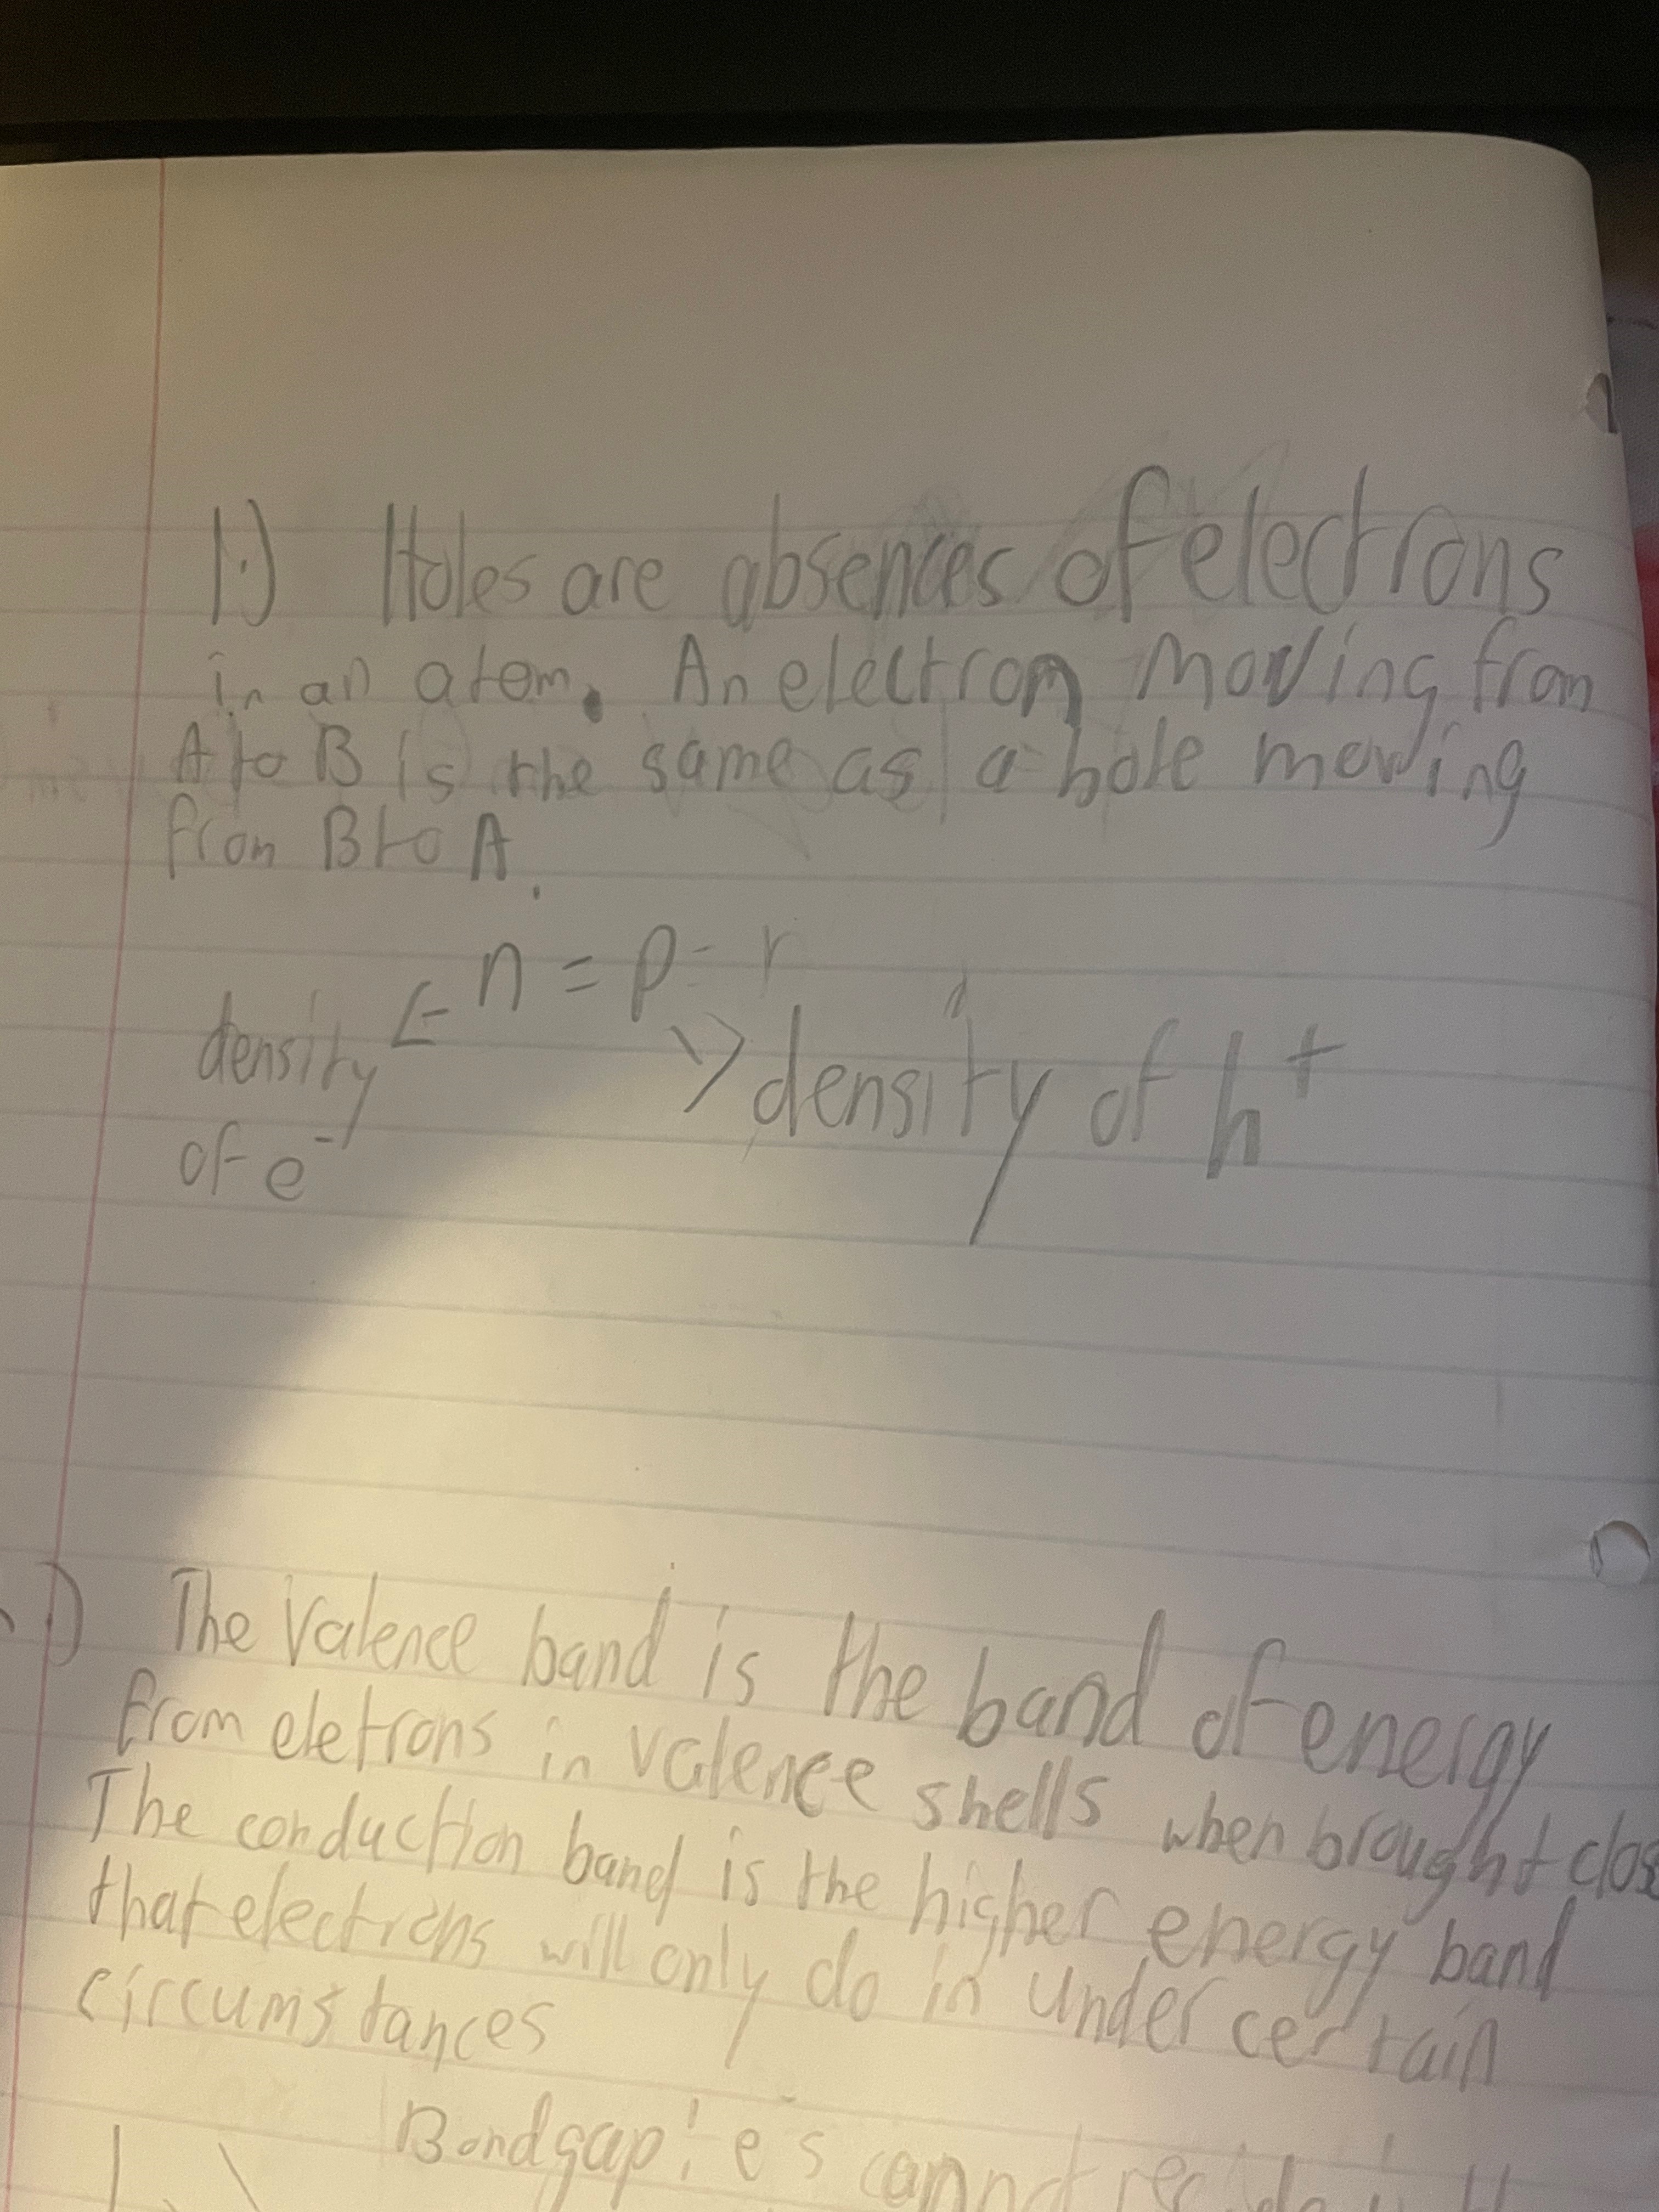 1.) Holes are absences of electrons
in an atom. An electron moving from
A to B is the same as a hole moving
from B to A.
n = p = r
density
of e⁻
density of h⁺
.) The valence band is the band of energy
from eletrons in valence shells when brought clos
The conduction band is the higher energy band
that electrons will only do in under certain
circumstances
Bandgap: e⁻s cannot